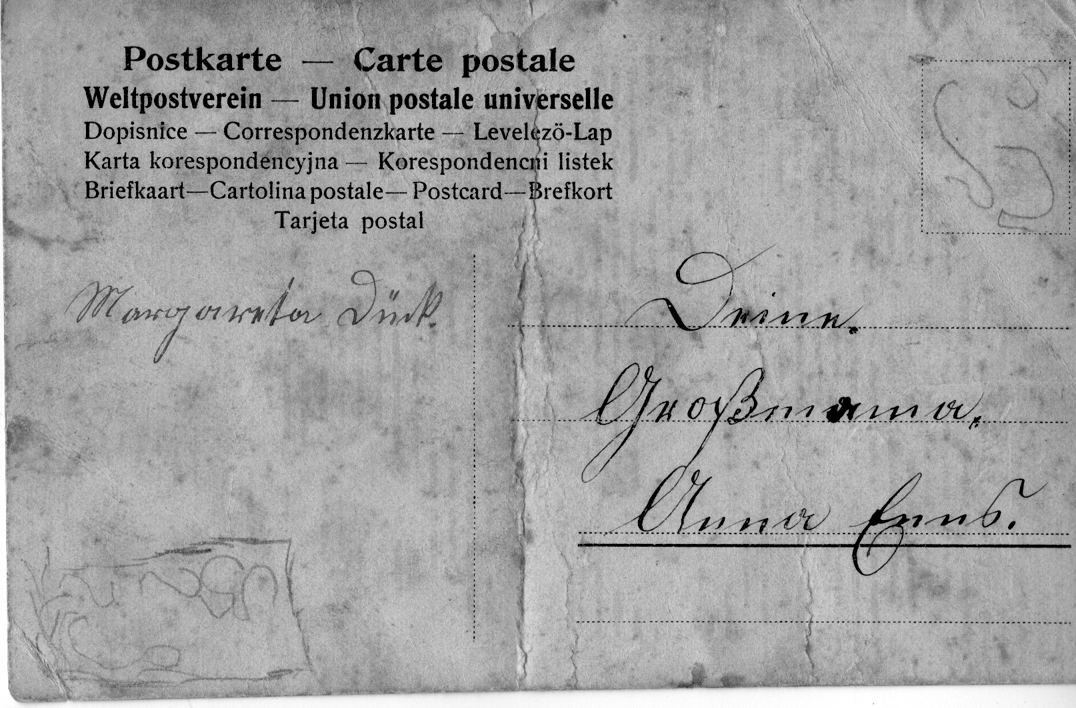 Postkarte — Carte postale
Weltpostverein — Union postale universelle
Dopisnice — Correspondenzkarte — Levelező-Lap
Karta korespondencyjna — Korespondencni listek
Briefkaart—Cartolina postale—Postcard—Brefkort
Tarjeta postal
Margareta Dück.
Deine.
Großmama.
Anna Enns.